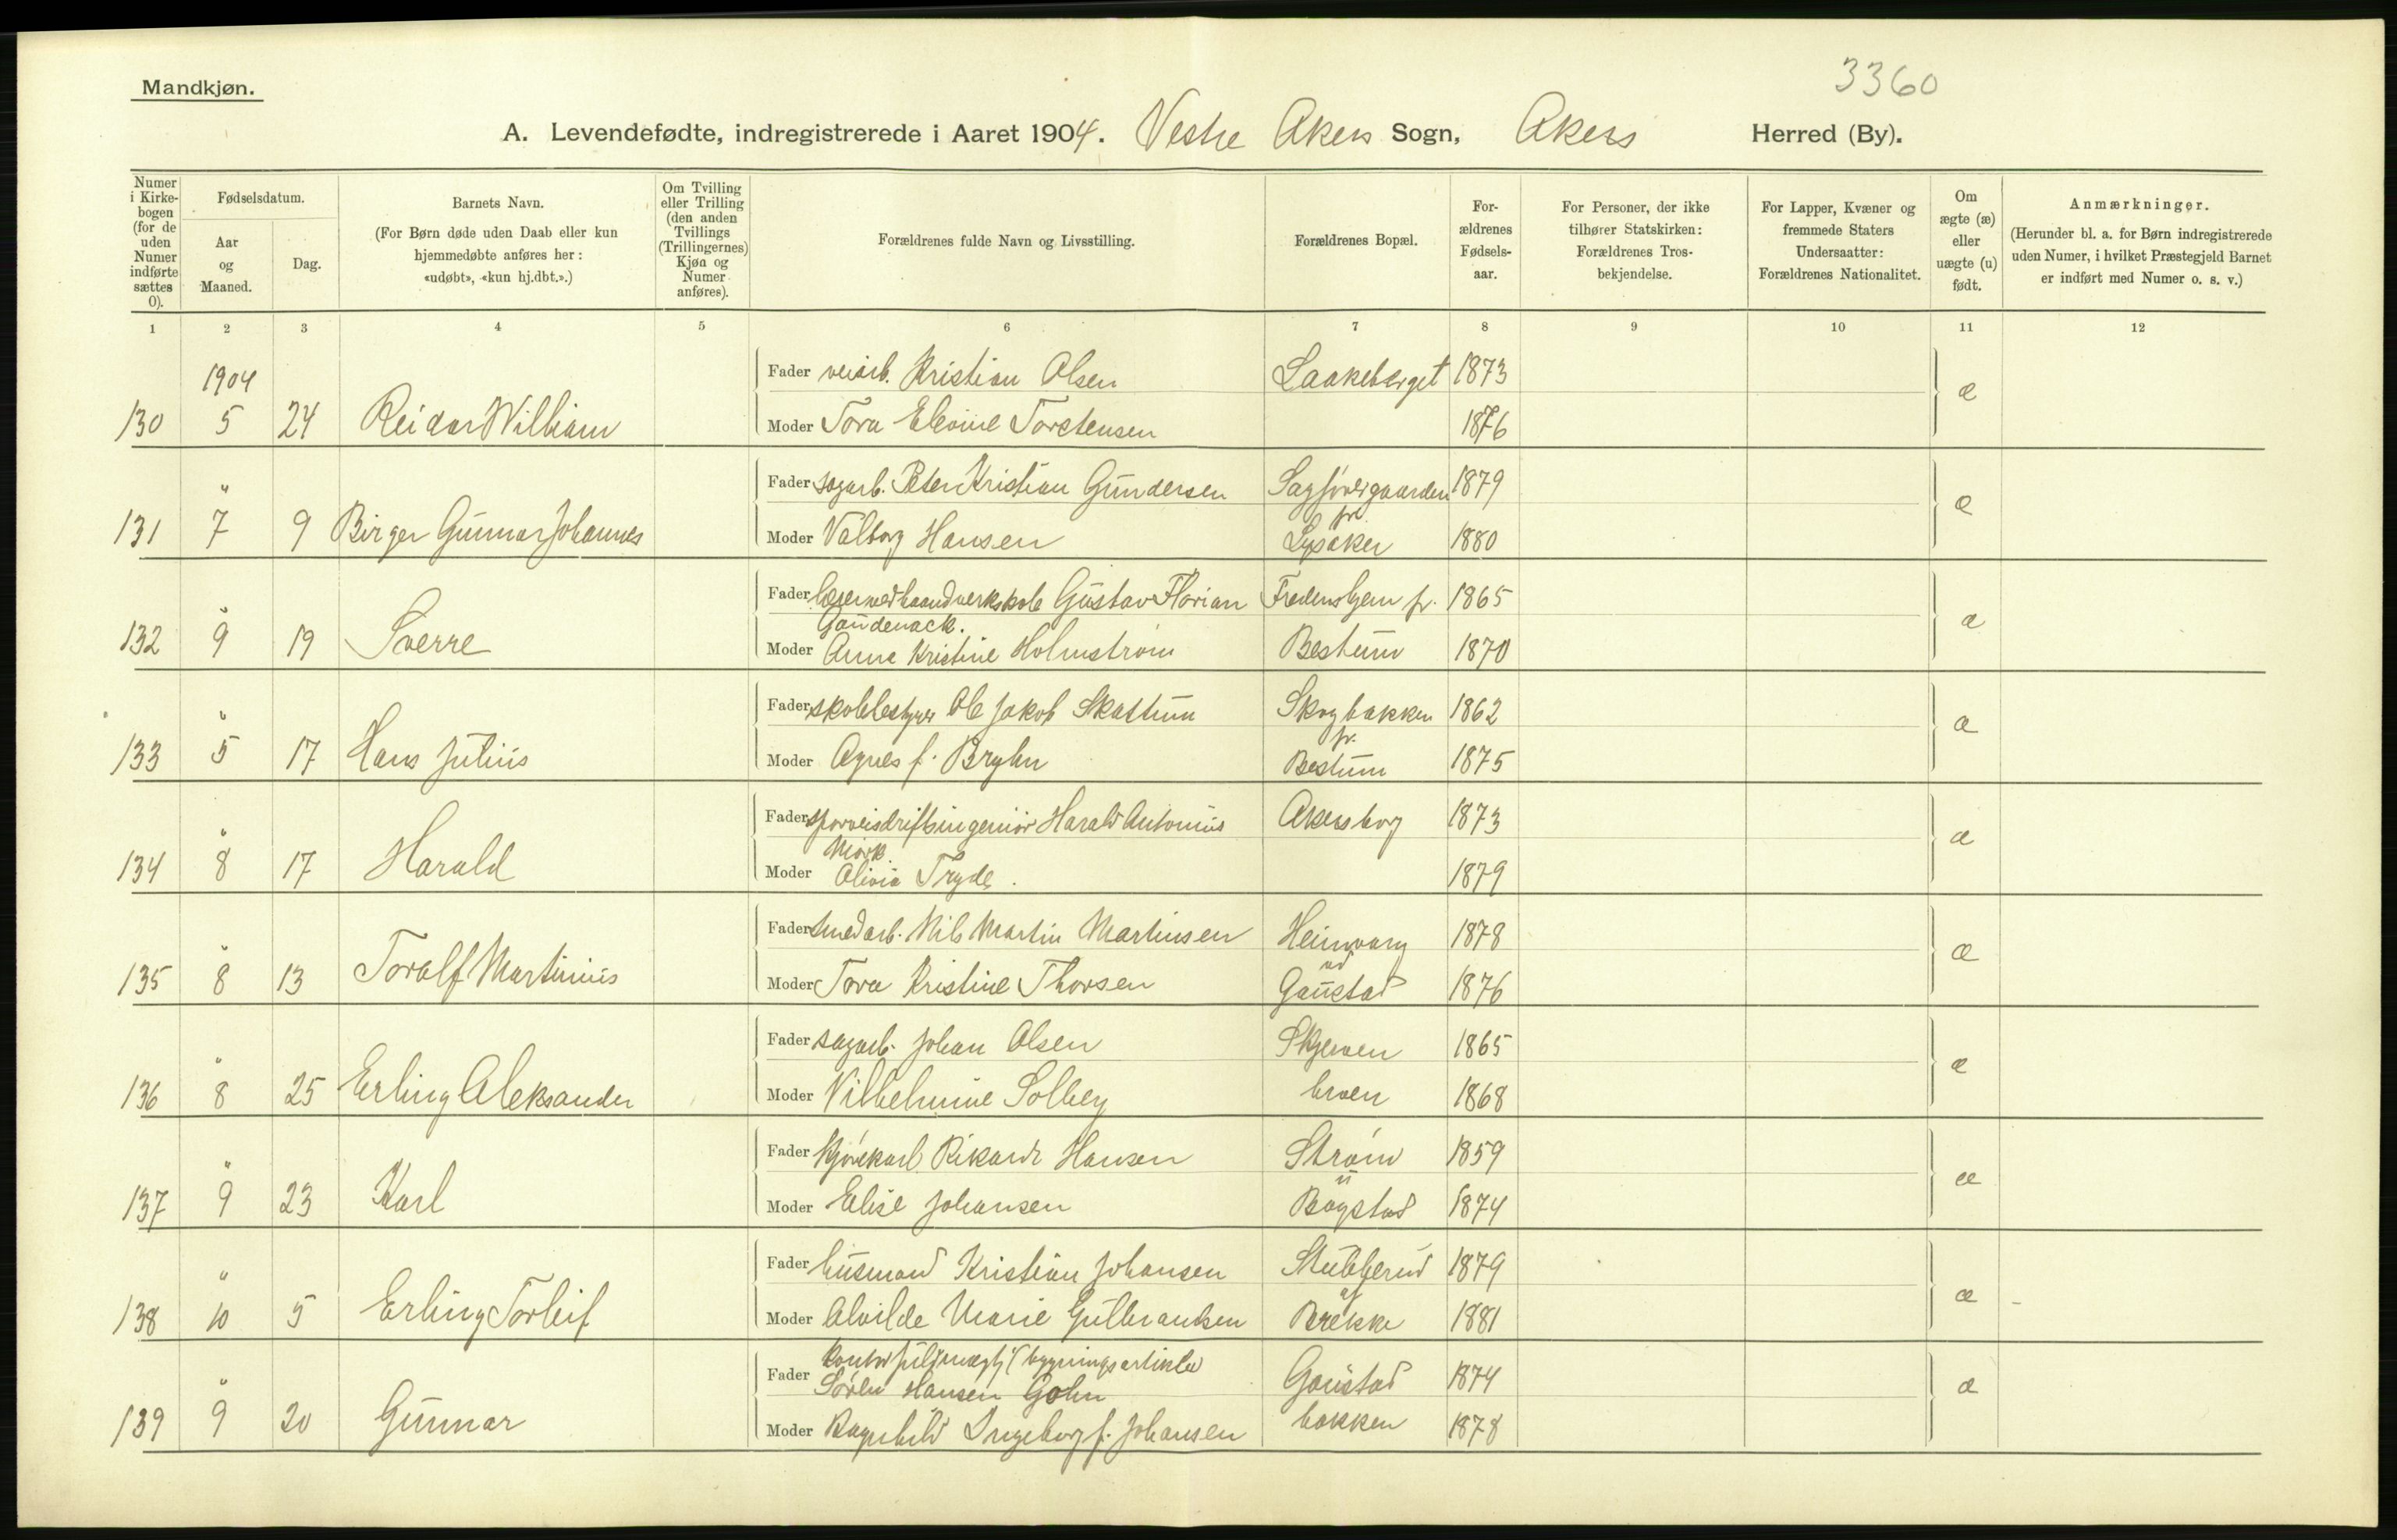 Mandkjøn.
3360
A. Levendefødte, indregistrerede i Aaret 1904. Vestre Akers Sogn, Akers Herred (By).
Numer i Kirkebogen (for de uden Numer indførte sættes 0).
Fødselsdatum.
Aar og Maaned.
Dag.
Barnets Navn.
(For Børn døde uden Daab eller kun hjemmedøbte anføres her: «udøbt», «kun hj.dbt.».)
Om Tvilling eller Trilling (den anden Tvillings (Trillingernes) Kjøn og Numer anføres).
Forældrenes fulde Navn og Livsstilling.
Forældrenes Bopæl.
Forældrenes Fødselsaar.
For Personer, der ikke tilhører Statskirken: Forældrenes Trosbekjendelse.
For Lapper, Kvæner og fremmede Staters Undersaatter: Forældrenes Nationalitet.
Om ægte (æ) eller uægte (u) født.
Anmærkninger.
(Herunder bl. a. for Børn indregistrerede uden Numer, i hvilket Præstegjeld Barnet er indført med Numer o. s. v.)
1 2 3 4 5 6 7 8 9 10 11 12
1904
Fader veiarb. Kristian Olsen Laakeberget 1873 æ
130 5 24 Reidar William Moder Tora Torstensen 1876
Fader sagarb. Peter Kristian Gundersen 1879 æ
" pr.
131 7 9 Birger Gunnar Johannes Moder Valborg Hansen Lysaker 1880
Fader Gustav Florian Fredenshjem pr. 1865 æ
" Gaudenack.
132 9 19 Sverre Moder Anna Kristine Holmstrøm Bestum 1870
Fader skolebestyrer Ole Jakob Skattum Skogbakken 1862 æ
" pr.
133 5 17 Hans Julius Moder Agnes f. Bryhn Bestum 1875
Fader sporveisdriftsingeniør Harald Antonius Akersborg 1873 æ
" Mørk.
134 8 17 Harald Moder Alivia Tryde. 1879
Fader smedarb. Nils Martin Martinsen Heimvang 1878 æ
" ved
135 8 13 Toralf Martinius Moder Tora Kristine Thorsen Gaustad 1876
Fader sagarb. Johan Olsen Skjerven 1865 æ
"
136 8 25 Erling Aleksander Moder Vilhelmine Solberg broen 1868
Fader kjørekarl Rikard Hansen Strøm 1859 æ
" u
137 9 23 Karl Moder Elise Johansen Bogstad 1874
Fader husmand Kristian Johansen Stubberud 1879 æ
" af
138 10 5 Erling Torleif Moder Alvilde Marie Gulbrandsen Brekke 1881
kontorfuldmægtig i bygningsartikler
Fader Søren Hansen Gohn Gaustad 1874 æ
"
139 9 20 Gunnar Moder Ragnhild Ingeborg f. Johansen bakken 1878